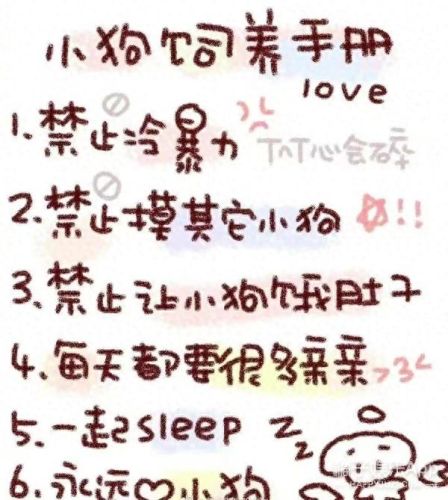 小狗饲养手册
love
1.禁止冷暴力 TnT心会碎
2.禁止摸其它小狗 !!
3.禁止让小狗饿肚子
4.每天都要很多亲亲 >3<
5.一起sleep zz
6.永远♡小狗